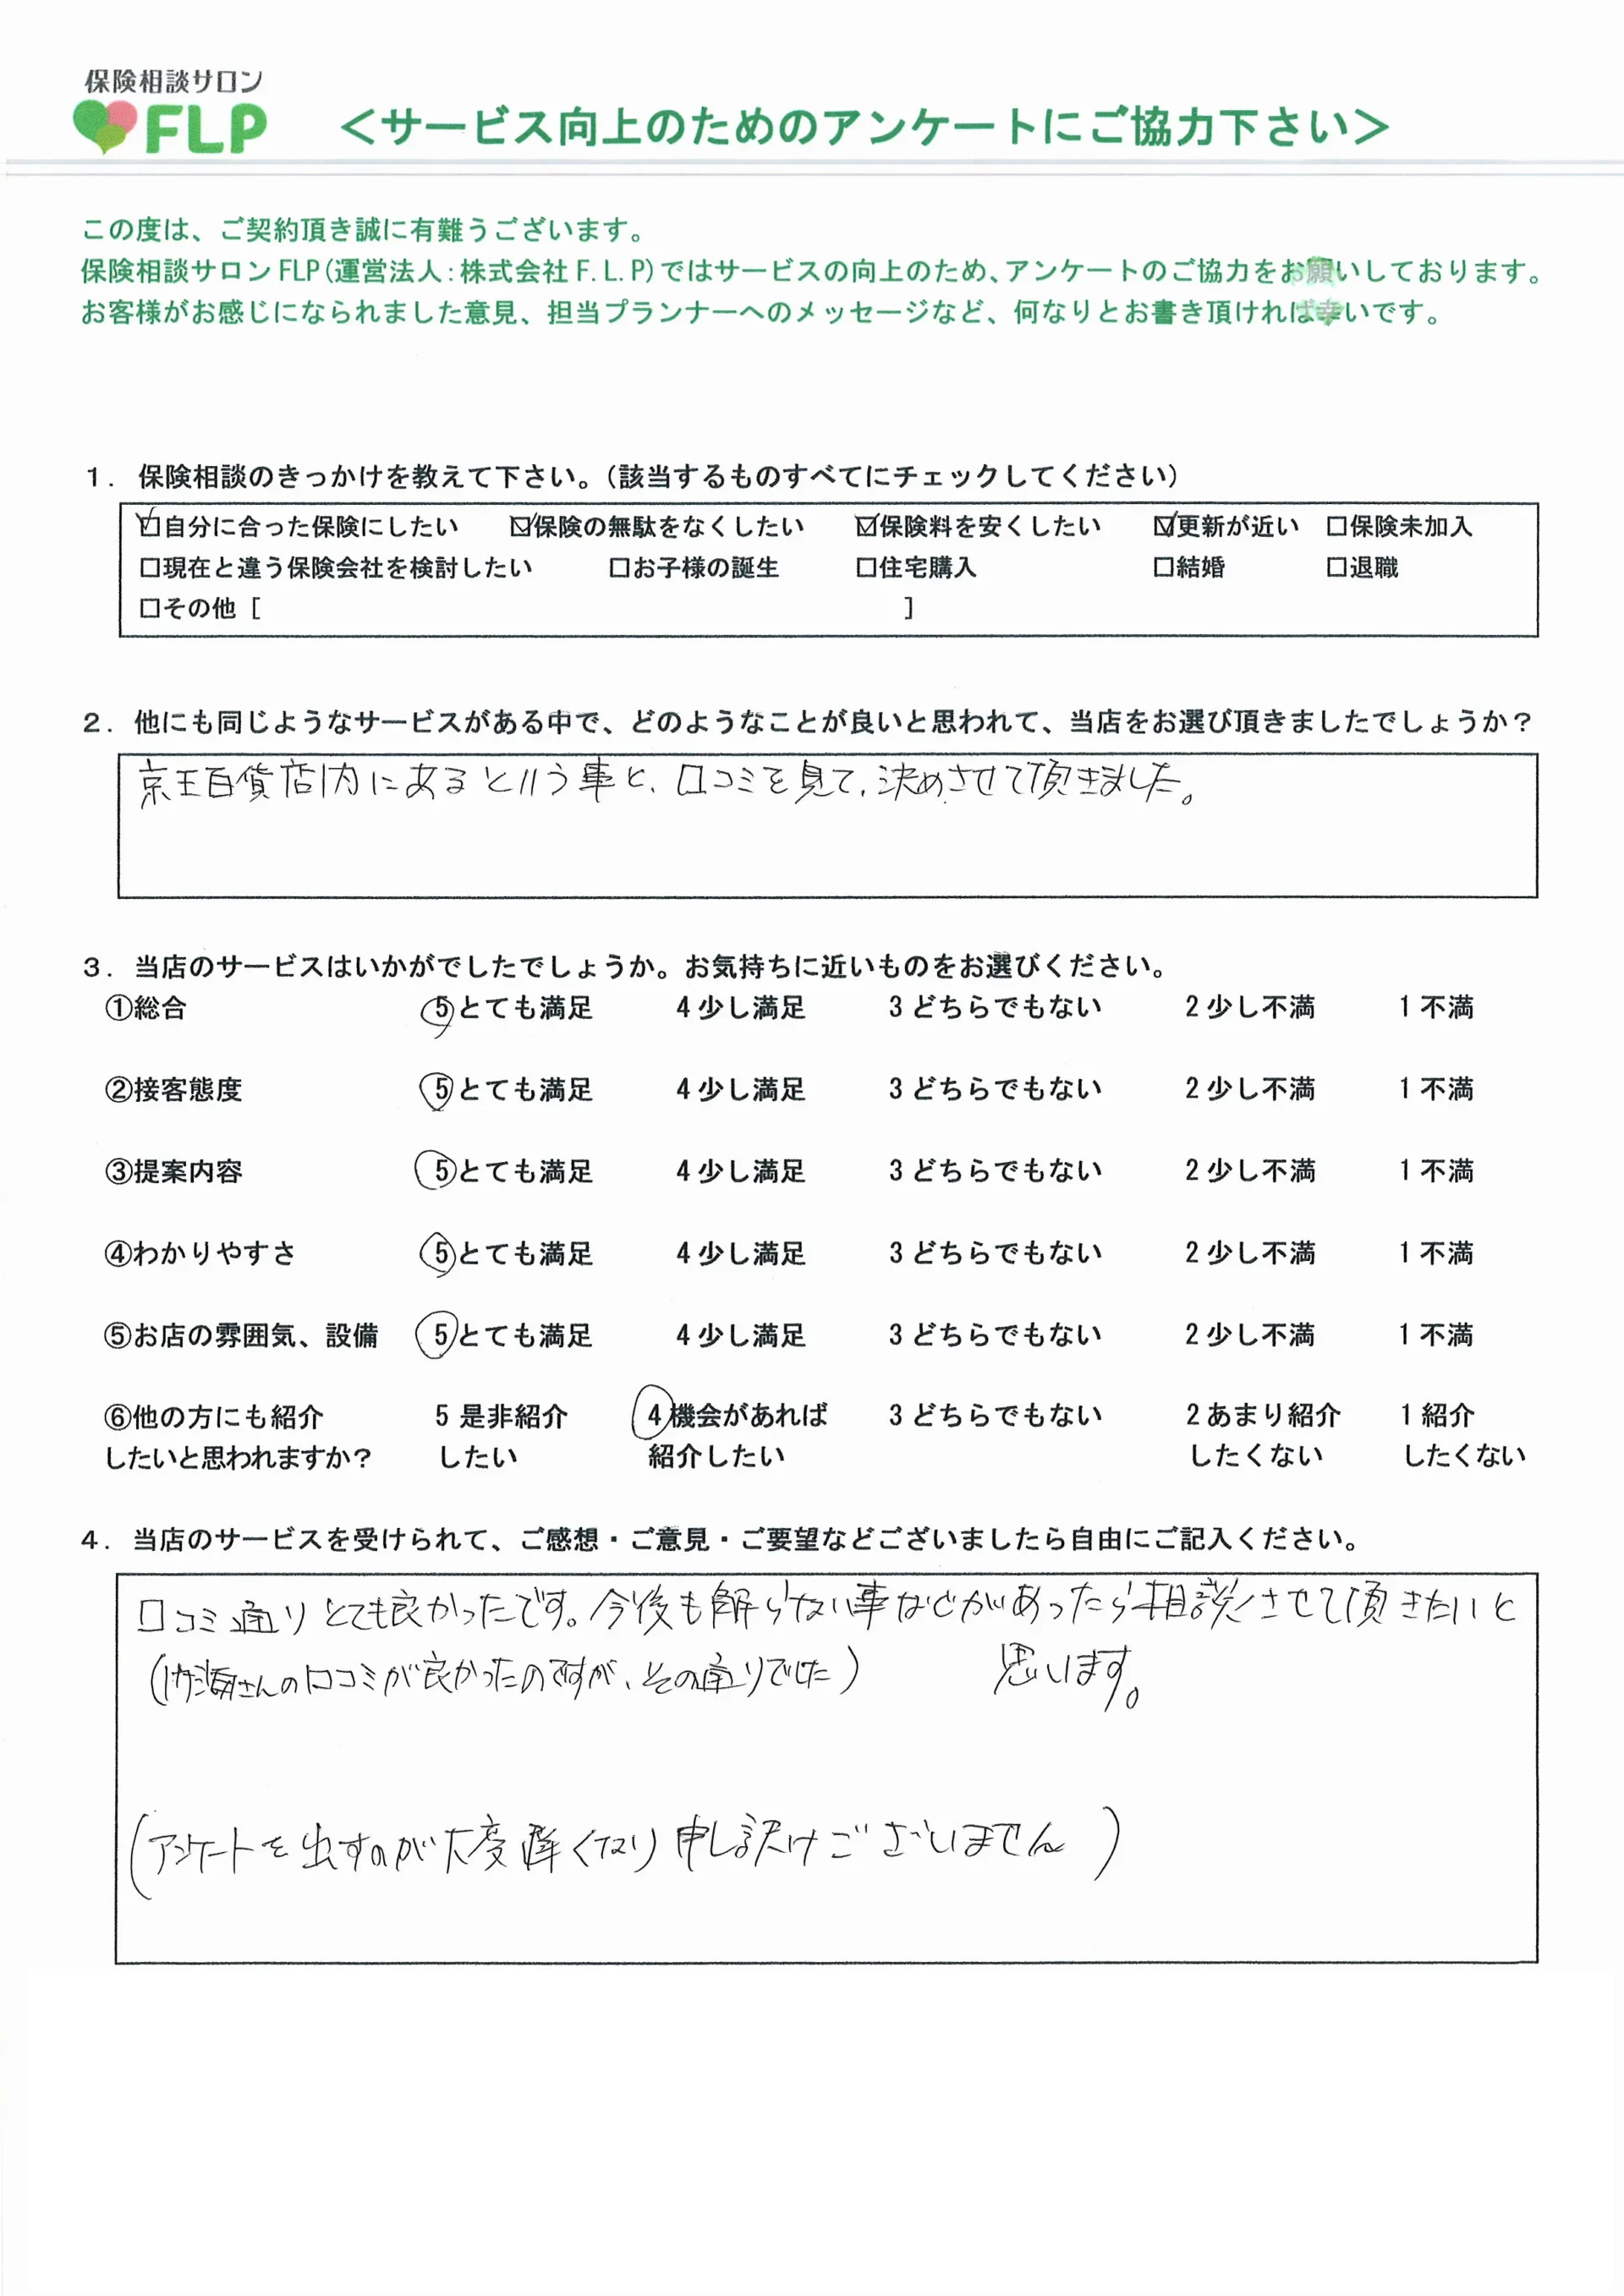 保険相談サロン
FLP
＜サービス向上のためのアンケートにご協力下さい＞
この度は、ご契約頂き誠に有難うございます。
保険相談サロンFLP(運営法人:株式会社F.L.P)ではサービスの向上のため、アンケートのご協力をお願いしております。
お客様がお感じになられました意見、担当プランナーへのメッセージなど、何なりとお書き頂ければ幸いです。
1. 保険相談のきっかけを教えて下さい。(該当するものすべてにチェックしてください)
☑自分に合った保険にしたい ☑保険の無駄をなくしたい ☑保険料を安くしたい ☑更新が近い □保険未加入
□現在と違う保険会社を検討したい □お子様の誕生 □住宅購入 □結婚 □退職
□その他 [ ]
2. 他にも同じようなサービスがある中で、どのようなことが良いと思われて、当店をお選び頂きましたでしょうか?
京王百貨店内にあるという事と、口コミを見て、決めさせて頂きました。
3. 当店のサービスはいかがでしたでしょうか。お気持ちに近いものをお選びください。
①総合 5とても満足 4少し満足 3どちらでもない 2少し不満 1不満
②接客態度 5とても満足 4少し満足 3どちらでもない 2少し不満 1不満
③提案内容 5とても満足 4少し満足 3どちらでもない 2少し不満 1不満
④わかりやすさ 5とても満足 4少し満足 3どちらでもない 2少し不満 1不満
⑤お店の雰囲気、設備 5とても満足 4少し満足 3どちらでもない 2少し不満 1不満
⑥他の方にも紹介 5是非紹介 4機会があれば 3どちらでもない 2あまり紹介 1紹介
したいと思われますか? したい 紹介したい したくない したくない
4. 当店のサービスを受けられて、ご感想・ご意見・ご要望などございましたら自由にご記入ください。
口コミ通りとても良かったです。今後も解らない事などがあったら相談させて頂きたいと
(さんの口コミが良かったのですが、その通りでした) 思います。
(アンケートを出すのが大変遅くなり申し訳けございません)